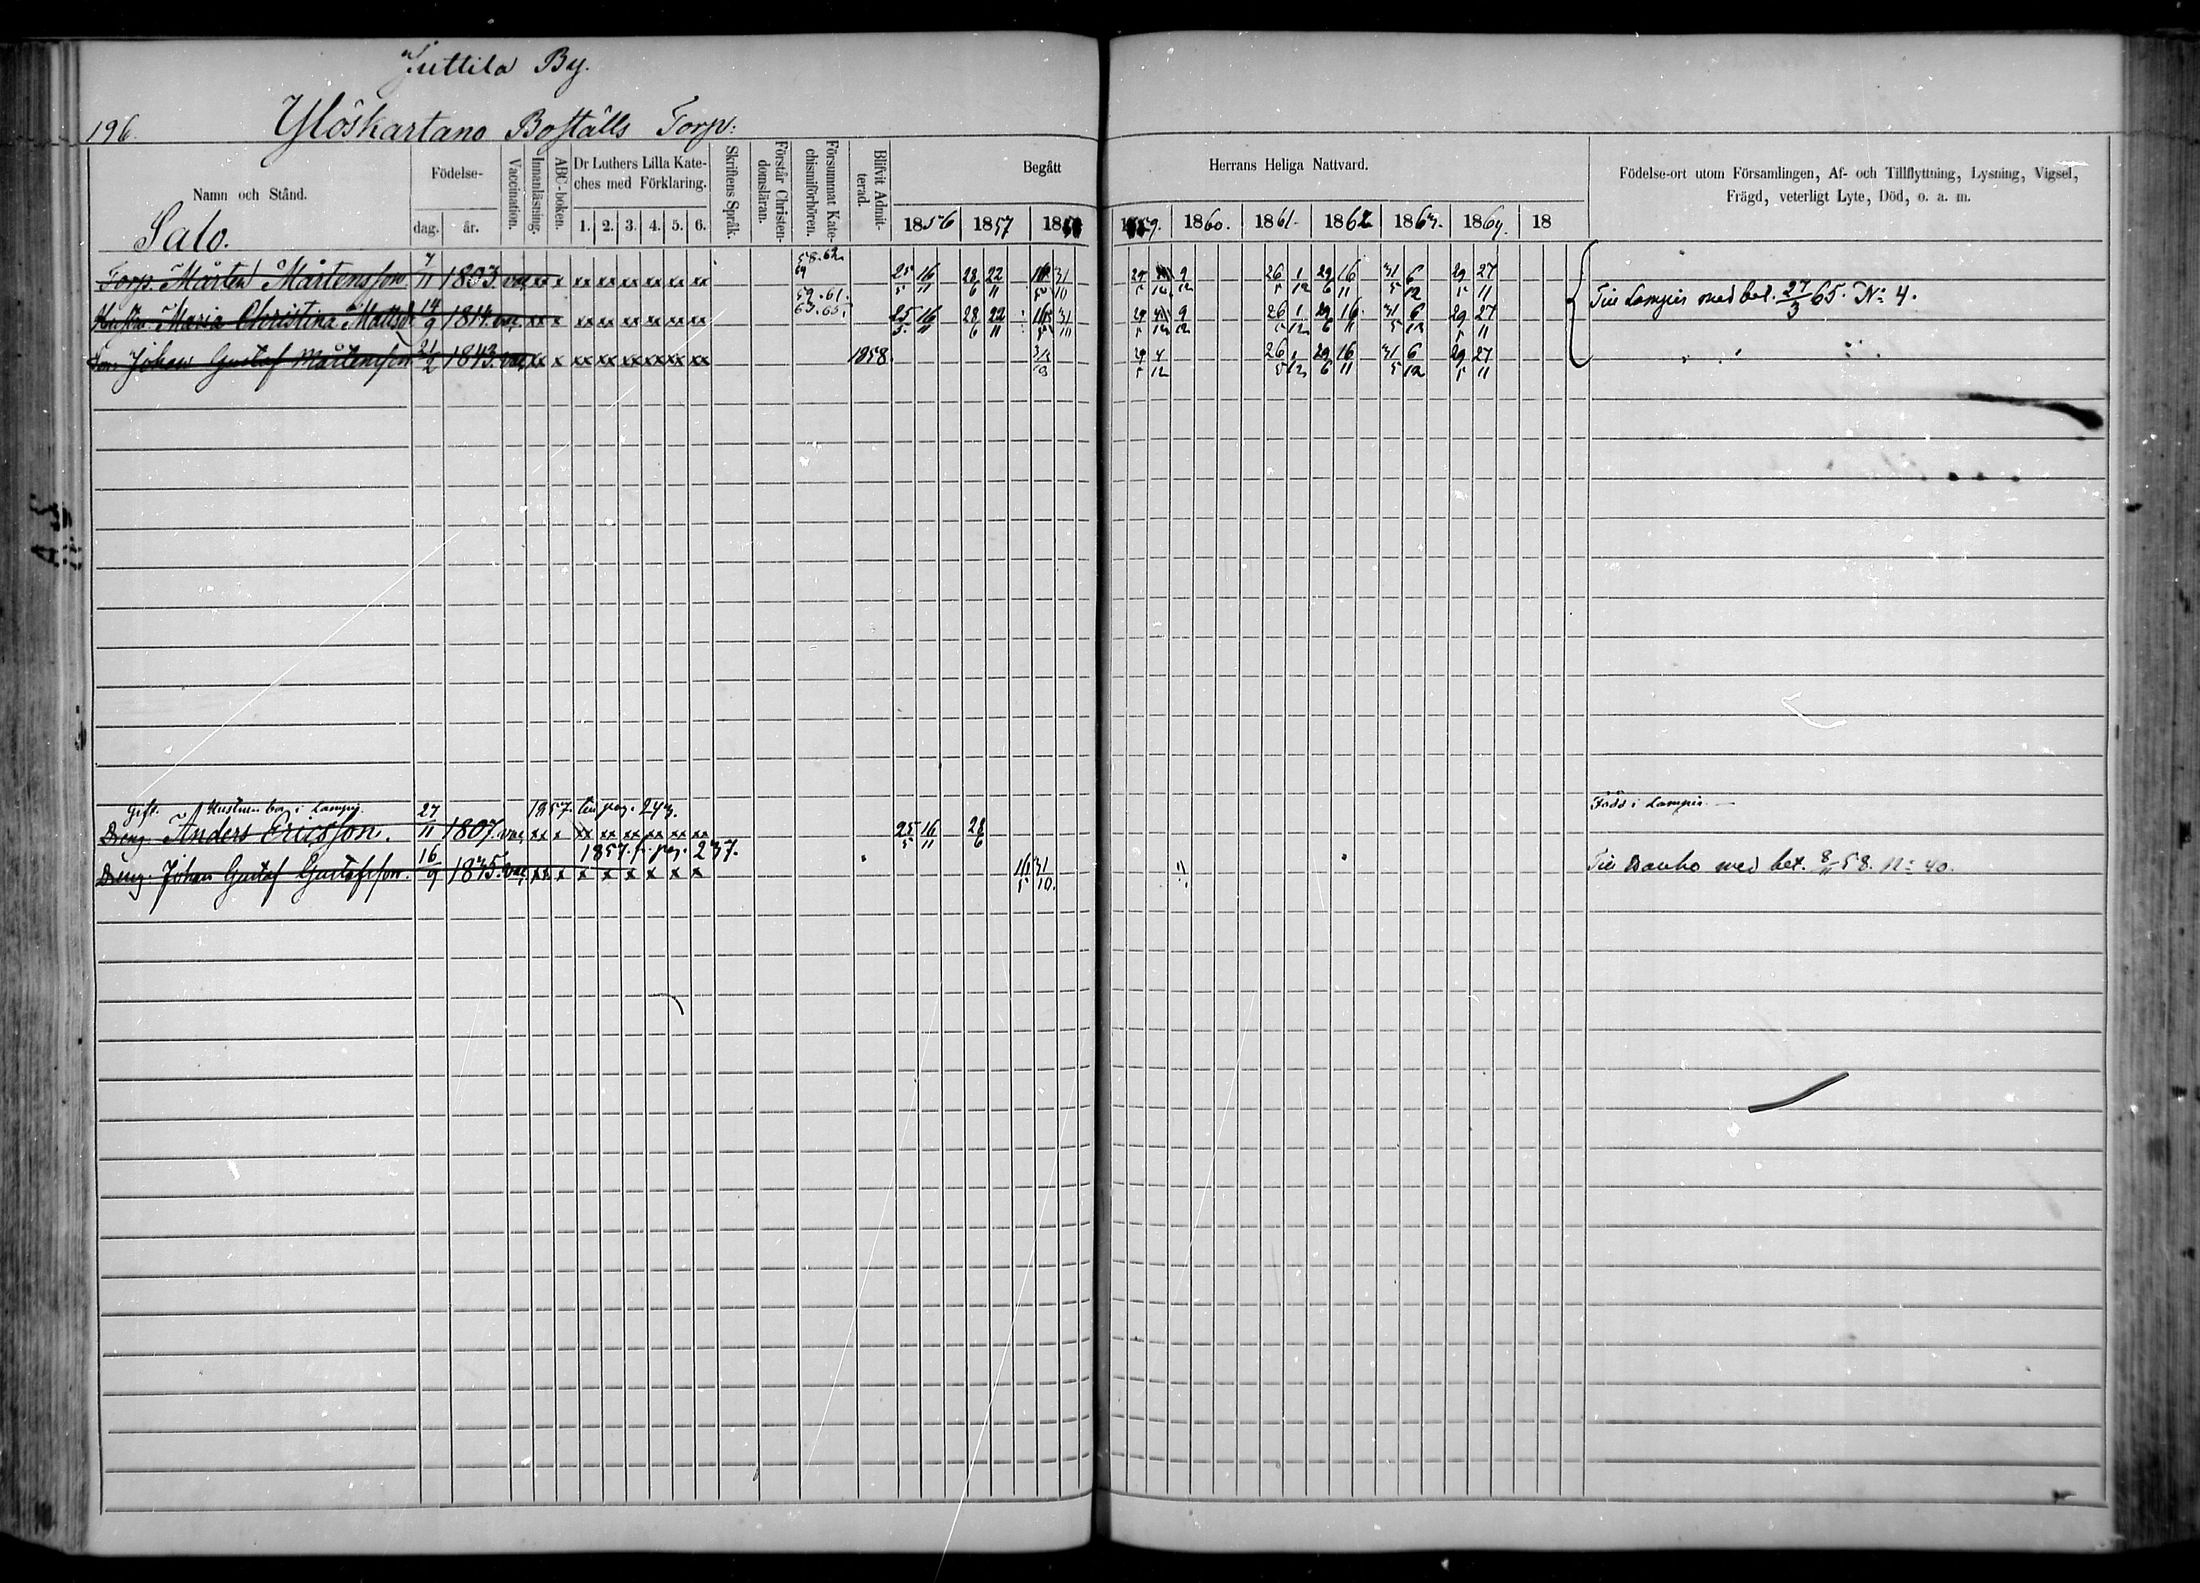 Juttila By.
196. Ylöskartano Boställs Torp:
Namn och Stånd.
Födelse-
dag. år.
Vaccination.
Innanläsning.
ABC-boken.
Dr Luthers Lilla Kate-
ches med Förklaring.
1. 2. 3. 4. 5. 6.
Skriftens Språk.
Förstår Christen-
domsläran.
Försummat Kate-
chismiförhören.
Blifvit Admit-
terad.
Begått Herrans Heliga Nattvard.
1856 1857 18 59. 1860. 1861. 1862 1863. 1864. 18
Födelse-ort utom Församlingen, Af- och Tillflyttning, Lysning, Vigsel,
Frägd, veterligt Lyte, Död, o. a. m.
Salo.
58. 62
64
Torp. Mårten Mårtensson 7/11 1803. vac xx x xx xx xx xx xx xx 25/5 16/11 28/6 22/11 16/5 31/10 29/5 9/12 26/5 1/12 29/6 16/11 31/5 6/12 29/5 27/11
59. 61.
63. 65.
Till Lampis med bet. 27/3 65. No 4.
Hustru Maria Christina Mattsd 14/9 1814. vac xx x xx xx xx xx xx xx 25/5 16/11 28/6 22/11 16/5 31/10 29/5 9/12 26/5 1/12 29/6 16/11 31/5 6/12 29/5 27/11
Son Johan Gustaf Mårtensson 21/2 1843. vac xx x xx xx xx xx xx xx 1858. 31/10 29/5 4/12 26/5 1/12 29/6 16/11 31/5 6/12 29/5 27/11
Gift. Hustrun bor i Lampis. 1857. till pag. 243. Född i Lampis.
Dreng. Anders Ericsson. 27/11 1807. vac xx x xx xx xx xx xx xx 25/5 16/11 28/6
1857. fr. pag. 237.
Dreng. Johan Gustaf Gustafsson. 16/9 1835. vac xx x x x x x x x 16/5 31/10. Till Vånå med bet. 8/11 58. No 40.